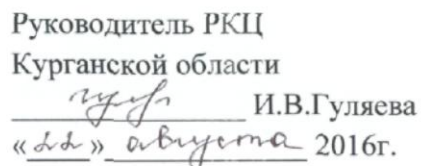 Руководитель РКЦ
Курганской области
И.В.Гуляева
«22» августа 2016г.